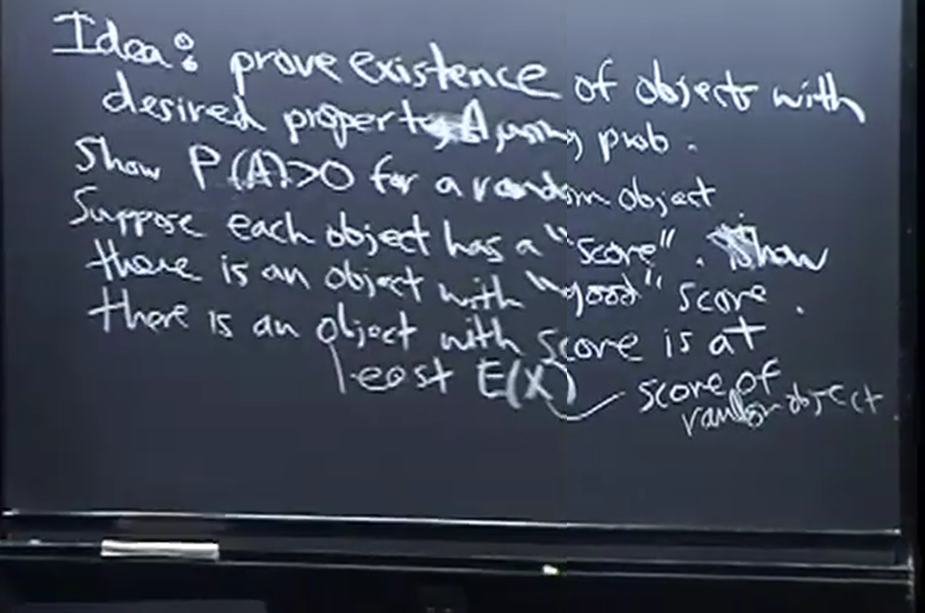 Idea: prove existence of objects with
desired property A using prob.
Show P(A)>0 for a random object
Suppose each object has a "score". Show
there is an object with "good" score.
there is an object with score is at
least E(X)
score of
random object